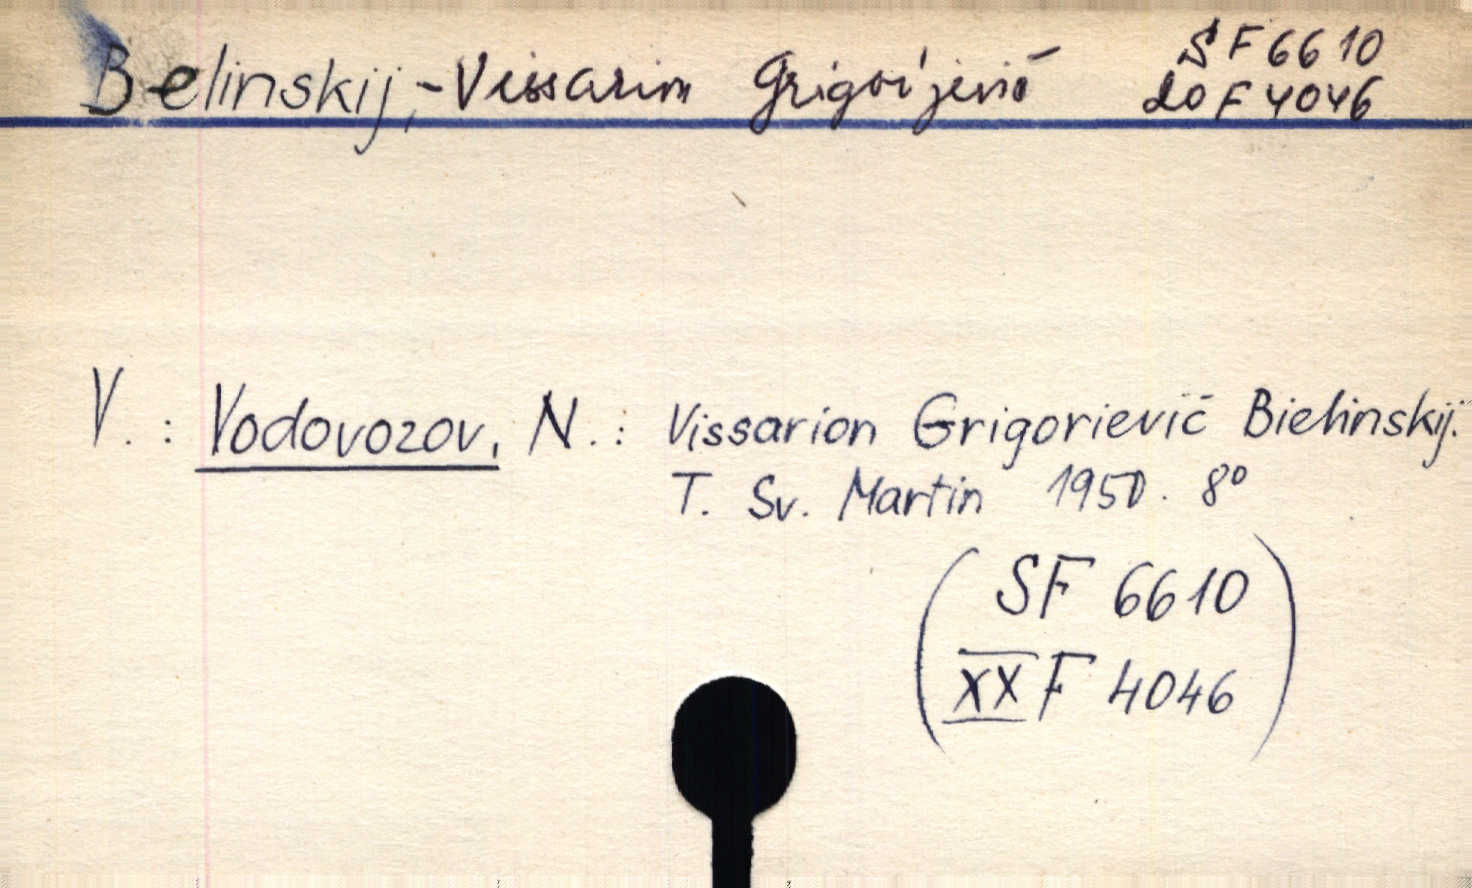 Belinskij, - Vissarion Grigorijevič SF 6610
20 F 4046
V. : Vodovozov, N. : Vissarion Grigorievič Bielinskij.
T. Sv. Martin 1950. 8º
SF 6610
XX F 4046